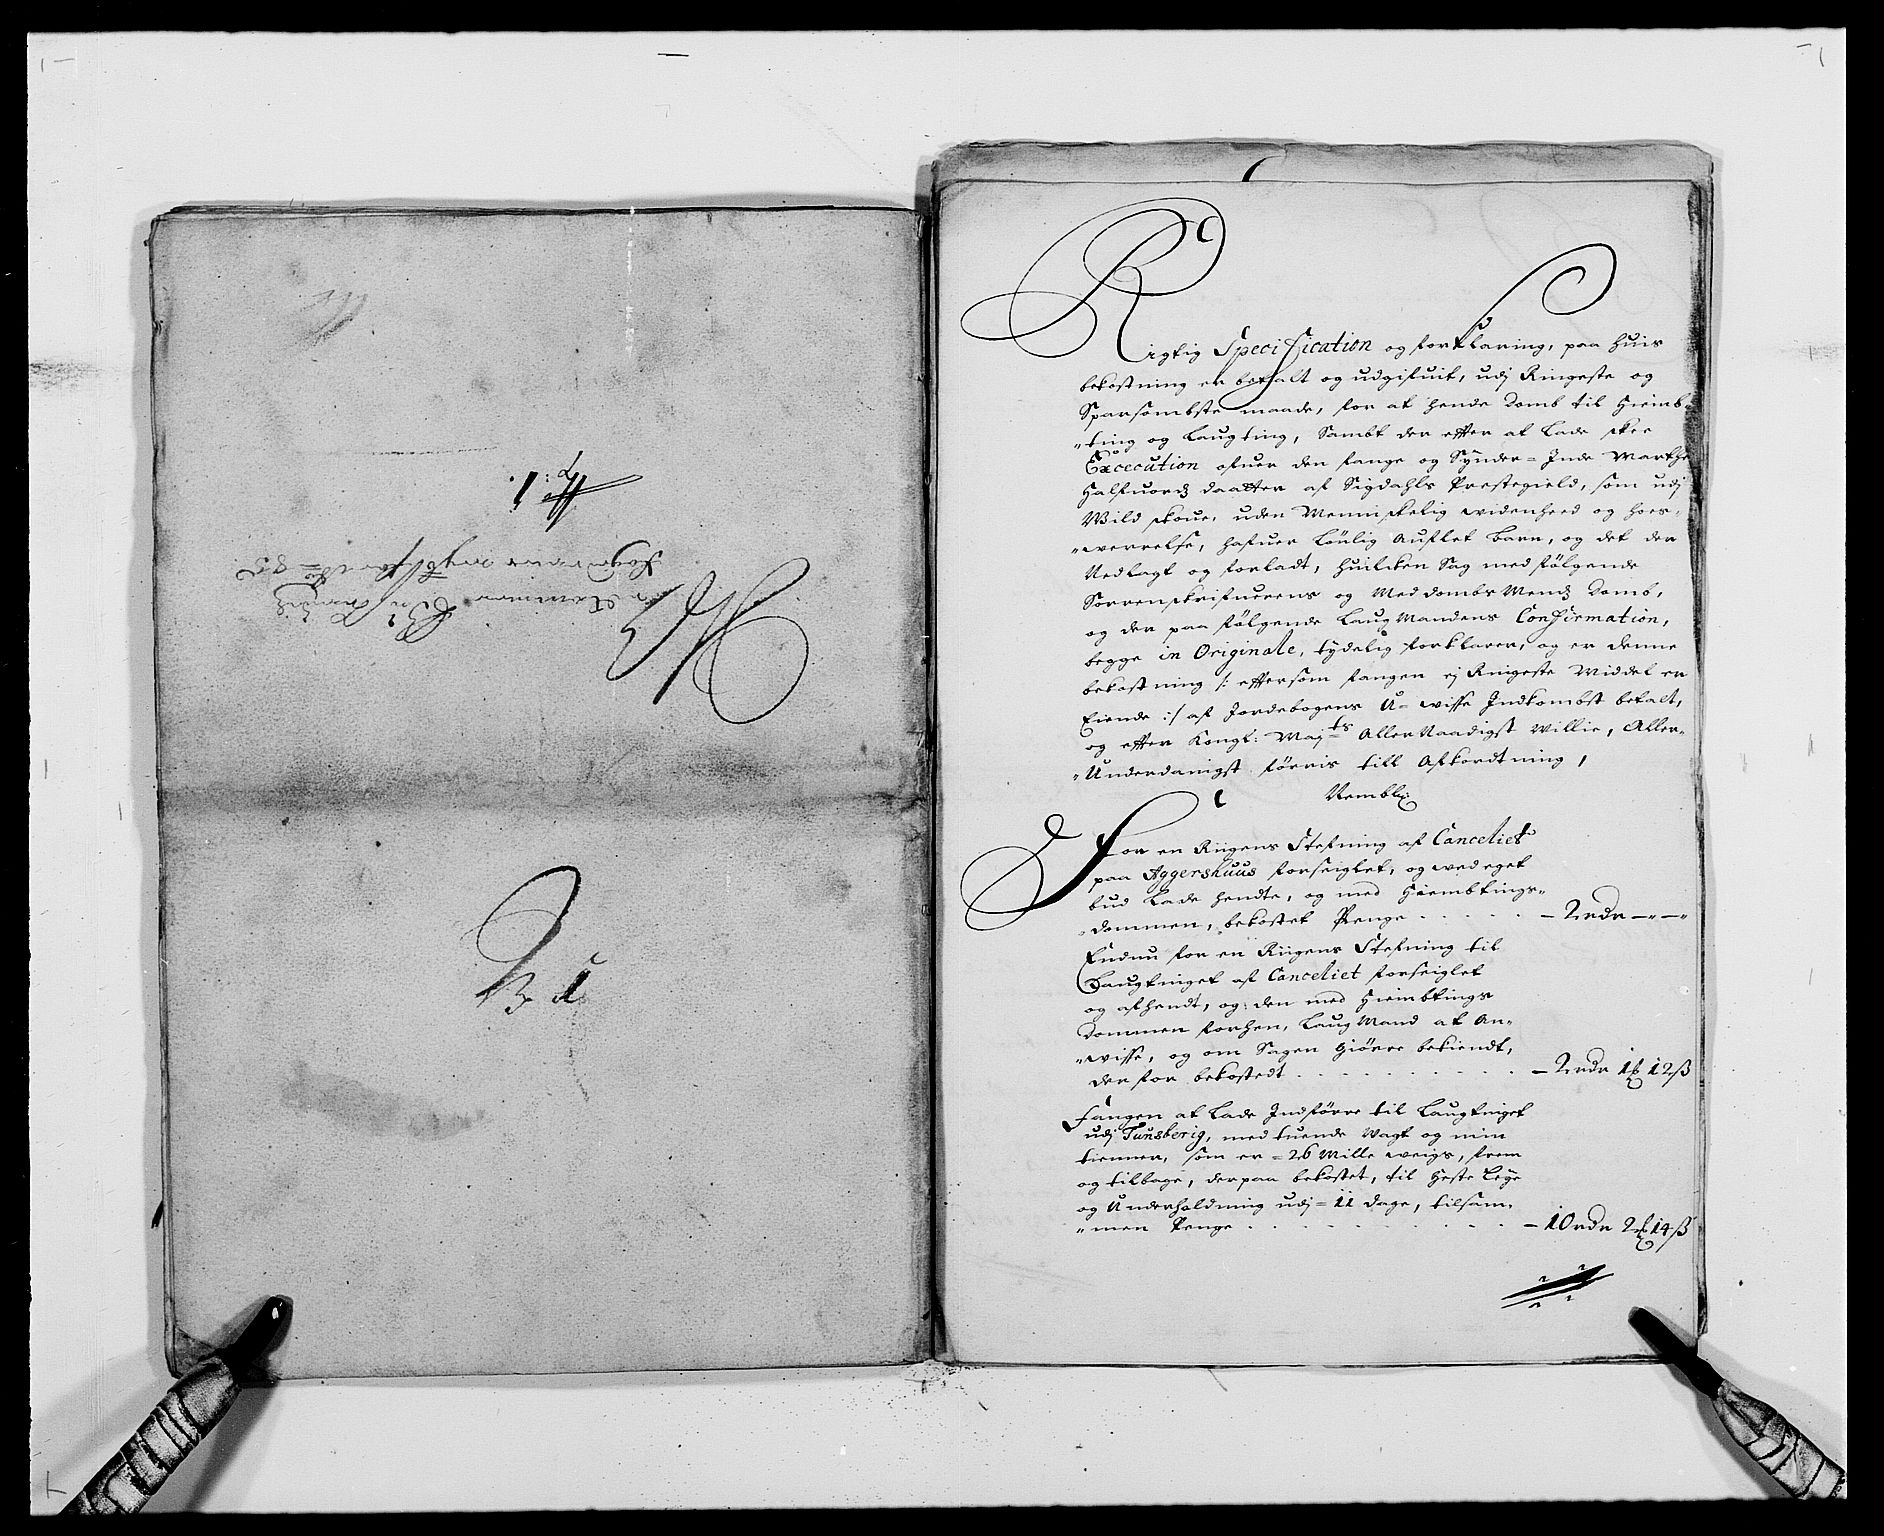 No 1
Rigtig Specification og forklaring, paa huis
bekostning er betalt og udgifuit, udj Ringeste og
Sparsombste maade, for at hende Domb til Hiemb-
"ting og Laugting, Sambt der effter at Lade skee
Execution ofuer den fange og Synder=Inde Marthe
Halfuordz daatter af Sigdahls Prestegield, som udj
Wild skoue, uden Menniskelig widenheed og hoes-
"werrelse, hafuer Lönlig Auflet barn, og det der
Nedlagt og forladt, huilcken Sag medfölgende
Sorrenskrifuerens og Meddombs Mendz Domb,
og der paa fölgende Laug Mandens Confirmation,
begge in Originale, tydelig forklarer, og er denne
bekostning /: efftersom fangen ej Ringeste Middel er
Eiende :/ af Jordebogens U=wisse Indkombst betalt,
og effter Kongl: Maj:ts AllerNaadigst Willie, Aller-
"Underdanigst föriis till Afkordtning,
Nembl:
For en Riigens Stefning af Canceliet
paa Aggershuus forseiglet, og wed eget
bud Lade hendte, og med Hiembtings-
"dommen, bekostet Penge - 2 rdr - " - "
Endnu for en Riigens Stefning til
Laugtinget af Canceliet forseiglet
og afhendt, og den med Hiembtings
Dommen forhen, Laug Mand at An-
"wisse, og om Sagen Giörre bekiendt,
der for bekostedt - 2 rdr 1 12 ß
Fangen at Lade Indförre til Laugtinget
udj Tunsberig, med tuende Wagt og min
tienner, som er = 26 Mille weigs, frem
og tilbage, derpaa bekostet, til Heste Leye
og Underholdning udj = 11 dage, tilsam-
"men Penge - 10 rdr 2 14 ß